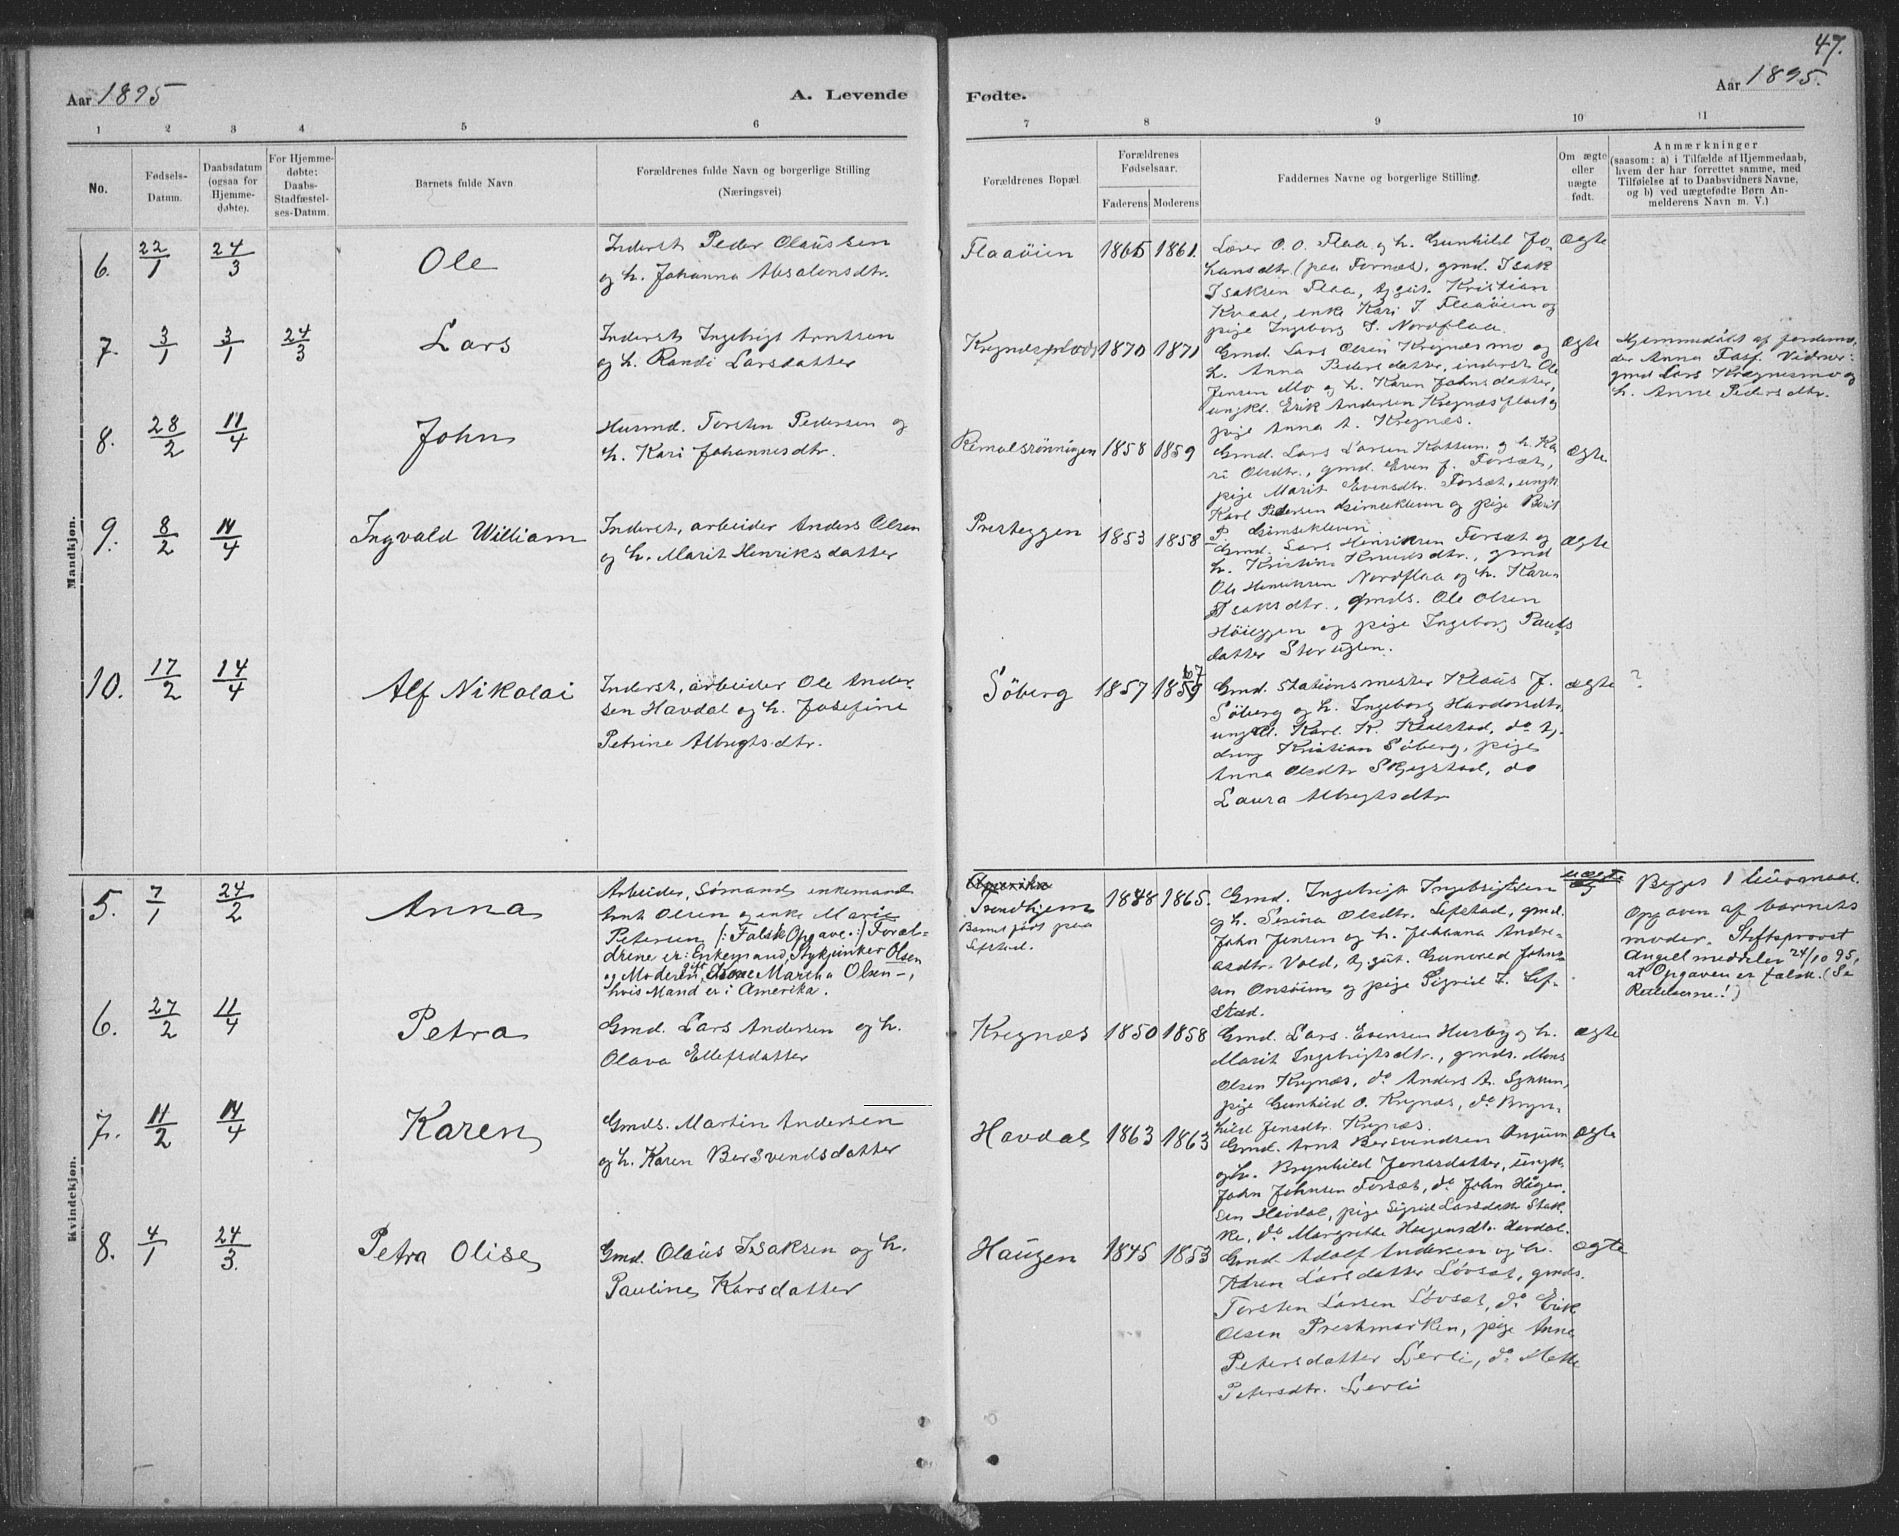 47.
Aar 1895
A. Levende
Fødte.
Aar 1895.
1 2 3 4 5 6
7 8 9 10 11
No.
Fødsels-
Datum.
Daabsdatum
(ogsaa for
Hjemme-
døbte).
For Hjemme-
døbte:
Daabs-
Stadfæstel-
ses-Datum.
Barnets fulde Navn
Forældrenes fulde Navn og borgerlige Stilling
(Næringsvei)
Forældrenes Bopæl.
Forældrenes
Fødselsaar.
Faderens Moderens
Faddernes Navne og borgerlige Stilling.
Om ægte
eller
uægte
født.
Anmærkninger
(saasom: a) i Tilfælde af Hjemmedaab,
hvem der har forrettet samme, med
Tilføielse af to Daabsvidners Navne,
og b) ved uægtefødte Børn An-
melderens Navn m. V.)
Mandkjøn.
6. 22/1 24/3 Ole
Inderst Peder Olaussen
og h. Johanna Absalonsdtr.
Flaaøien 1865 1861.
Lærer O. O. Flaa og h. Gunhild Jo-
hansdtr. (paa Fornæs), gmd. Isak
Isaksen Flaa, tjgut. Kristian
Kvaal, enke Kari J. Flaaøien og
pige Ingeborg J. Nordflaa.
ægte
7. 3/1 3/1 24/3 Lars
Inderst Ingebrigt Arntsen
og h. Randi Larsdatter
Krignæsplads 1870 1871
Gmd. Lars Olsen Krignæsmo og
h. Anna Pedersdatter, inderst Ole
Jensen Mo og h. Karen Johnsdatter,
ungkl. Erik Andersen Krognæsplads og
pige Anna A. Kregnæs.
ægte
Hjemmedøbt af jordemo-
der Anna Fosf. Vidner:
gmd Lars Krægnesmo og
h. Anne Pedersdtr.
8. 28/2 11/4 John
Husmd. Torsten Pedersen og
h. Kari Johannesdtr.
Remolsrönningen 1858 1859
Gmd. Lars Larsen Kattum og h. Ka-
ri Olsdtr., gmd. Even J. Forsæt,
pige Marit Evensdtr. Forsæt, ungk
Karl Pedersen Gimsekleiven og pige Berit
P. Gimsekleiven
ægte
9. 8/2 14/4 Ingvald William
Inderst, arbeider Anders Olsen
og h. Marit Henriksdatter
Presteggen 1853 1858
Gmd. Lars Henriksen Forsæt og
h. Kristine Knudsdtr., gmd
Ole Henriksen Nordflaa og h. Karen
Isaksdtr., gmds. Ole Olsen
Høieggen og pige Ingeborg Pauls
datter Storuglen.
ægte
10. 17/2 14/4 Alf Nikolai
Inderst, arbeider Ole Ander-
sen Havdal og h. Josefine
Petrine Albregtsdtr.
Søberg 1857 1859 67
Gmd. Stationsmester Klaus J.
Søberg og h. Ingeborg Hardorsdtr.
ungkl. Karl K. Kvalstad, do tj.
dreng Kristian Søberg, pige
Anna Olsdtr Skjegstad, do
Laura Albregtsdtr
ægte ?
Kvindekjøn.
5. 7/1 24/2 Anna
Arbeider, Sømand, enkemand
Arnt Olsen og enke Marie
Petersen (: Falsk Opgave.:) Foræl-
drene er: Enkemand, Stykjunker Olsen
og Moderen, gift Kone Martha Olsen -,
hvis Mand er i Amerika.
Amerika
Trondhjem
Barnet født paa
Lefstad.
1848 1865.
Gmd. Ingebrigt Ingebrigtsen
og h. Serina Olsdtr. Lefstad, gmd.
John Jensen og h. Johanna Andre-
asdtr. Vold, tj.gut. Gunvald Johns-
sen Onsøien og pige Sigrid I. Lef-
stad.
uægte
Begges 1 leiermaal.
Opgaven af barnets
moder. Stiftsprovst
Angell meddeler 24/10 95,
at Opgaven er falsk. (Se
Rettelserne!)
6. 27/2 11/4 Petra
Gmd. Lars Andersen og h.
Olava Ellefsdatter
Kregnæs 1850 1858
Gmd. Lars Evensen Husby og h.
Marit Ingebrigtsdtr., gmds. Mons
Olsen Kregnæs, do Anders A.
pige Gunhild O. Kregnæs, do Bryn-
hild Jensdtr. Kregnæs.
ægte
7. 11/2 14/4 Karen
Gmds. Martin Andersen
og h. Karen Bersvendsdatter
Havdal 1863 1863
Gmd. Arnt Bersvendsen
og h. Brynhild Jonasdatter, ungk.
John Johnsen Forsæt, do John Haagen-
sen Havdal, pige Sigrid Larsdatter Stok-
ke, do Margrethe Haagensdtr. Havdal.
ægte
8. 4/1 24/3. Petra Olise
Gmd. Olaus Isaksen og h.
Pauline Karsdatter
Haugen 1845 1853
Gmd. Adolf Andersen og h.
Karen Larsdatter Løvset, gmds.
Torsten Larsen Løvset, do Erik
Olsen Prestmarken, pige Anne
Petersdatter Lerli, do Mette
Petersdtr. Lerli
ægte